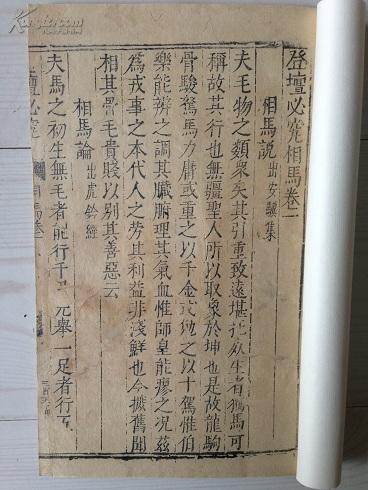 登壇必究相馬卷一
相馬說 出安驥集
夫毛物之類衆矣其引重致遠堪任 生者獨馬可
稱故其行也無疆聖人所以取象於坤也是故龍駒
骨駿駑馬力庸或重之以千金或 之以十駕惟伯
樂能辨之調其臟腑理其氣血惟師皇能療之况茲
爲戎事之本代人之勞其利益非淺鮮也今據舊聞
相其骨毛貴賤以別其善惡云
相馬論 出虎鈐經
夫馬之初生無毛者能行千里 元舉一足者行五
壇必究 相馬卷一